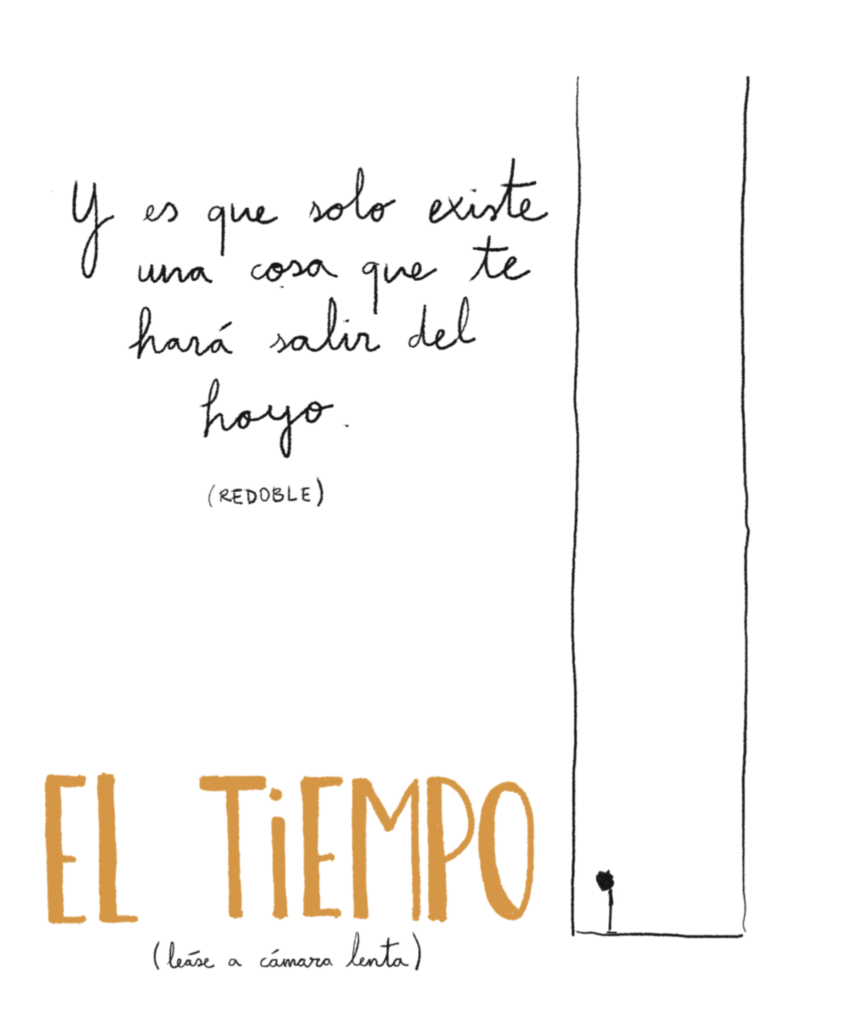 Y es que solo existe
una cosa que te
hará salir del
hoyo.
(REDOBLE)
EL TiEMPO
(leáse a cámara lenta)